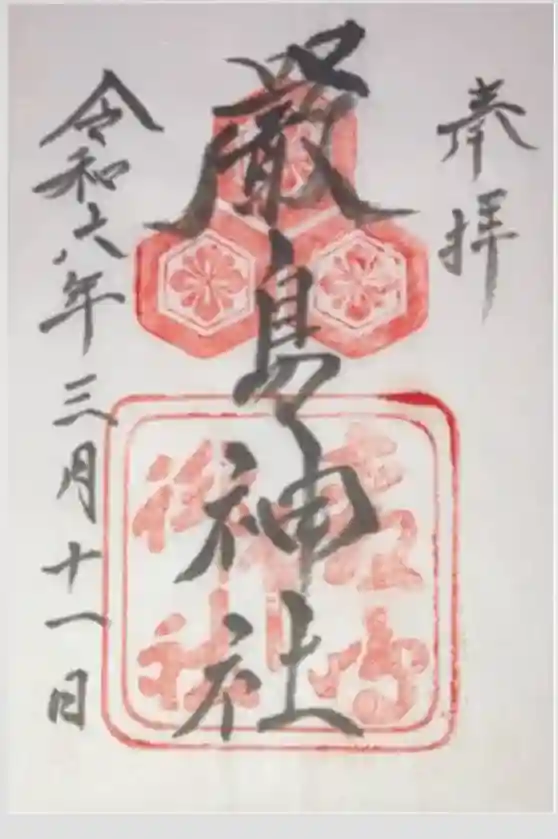 奉拝
厳島神社
令和六年三月十一日